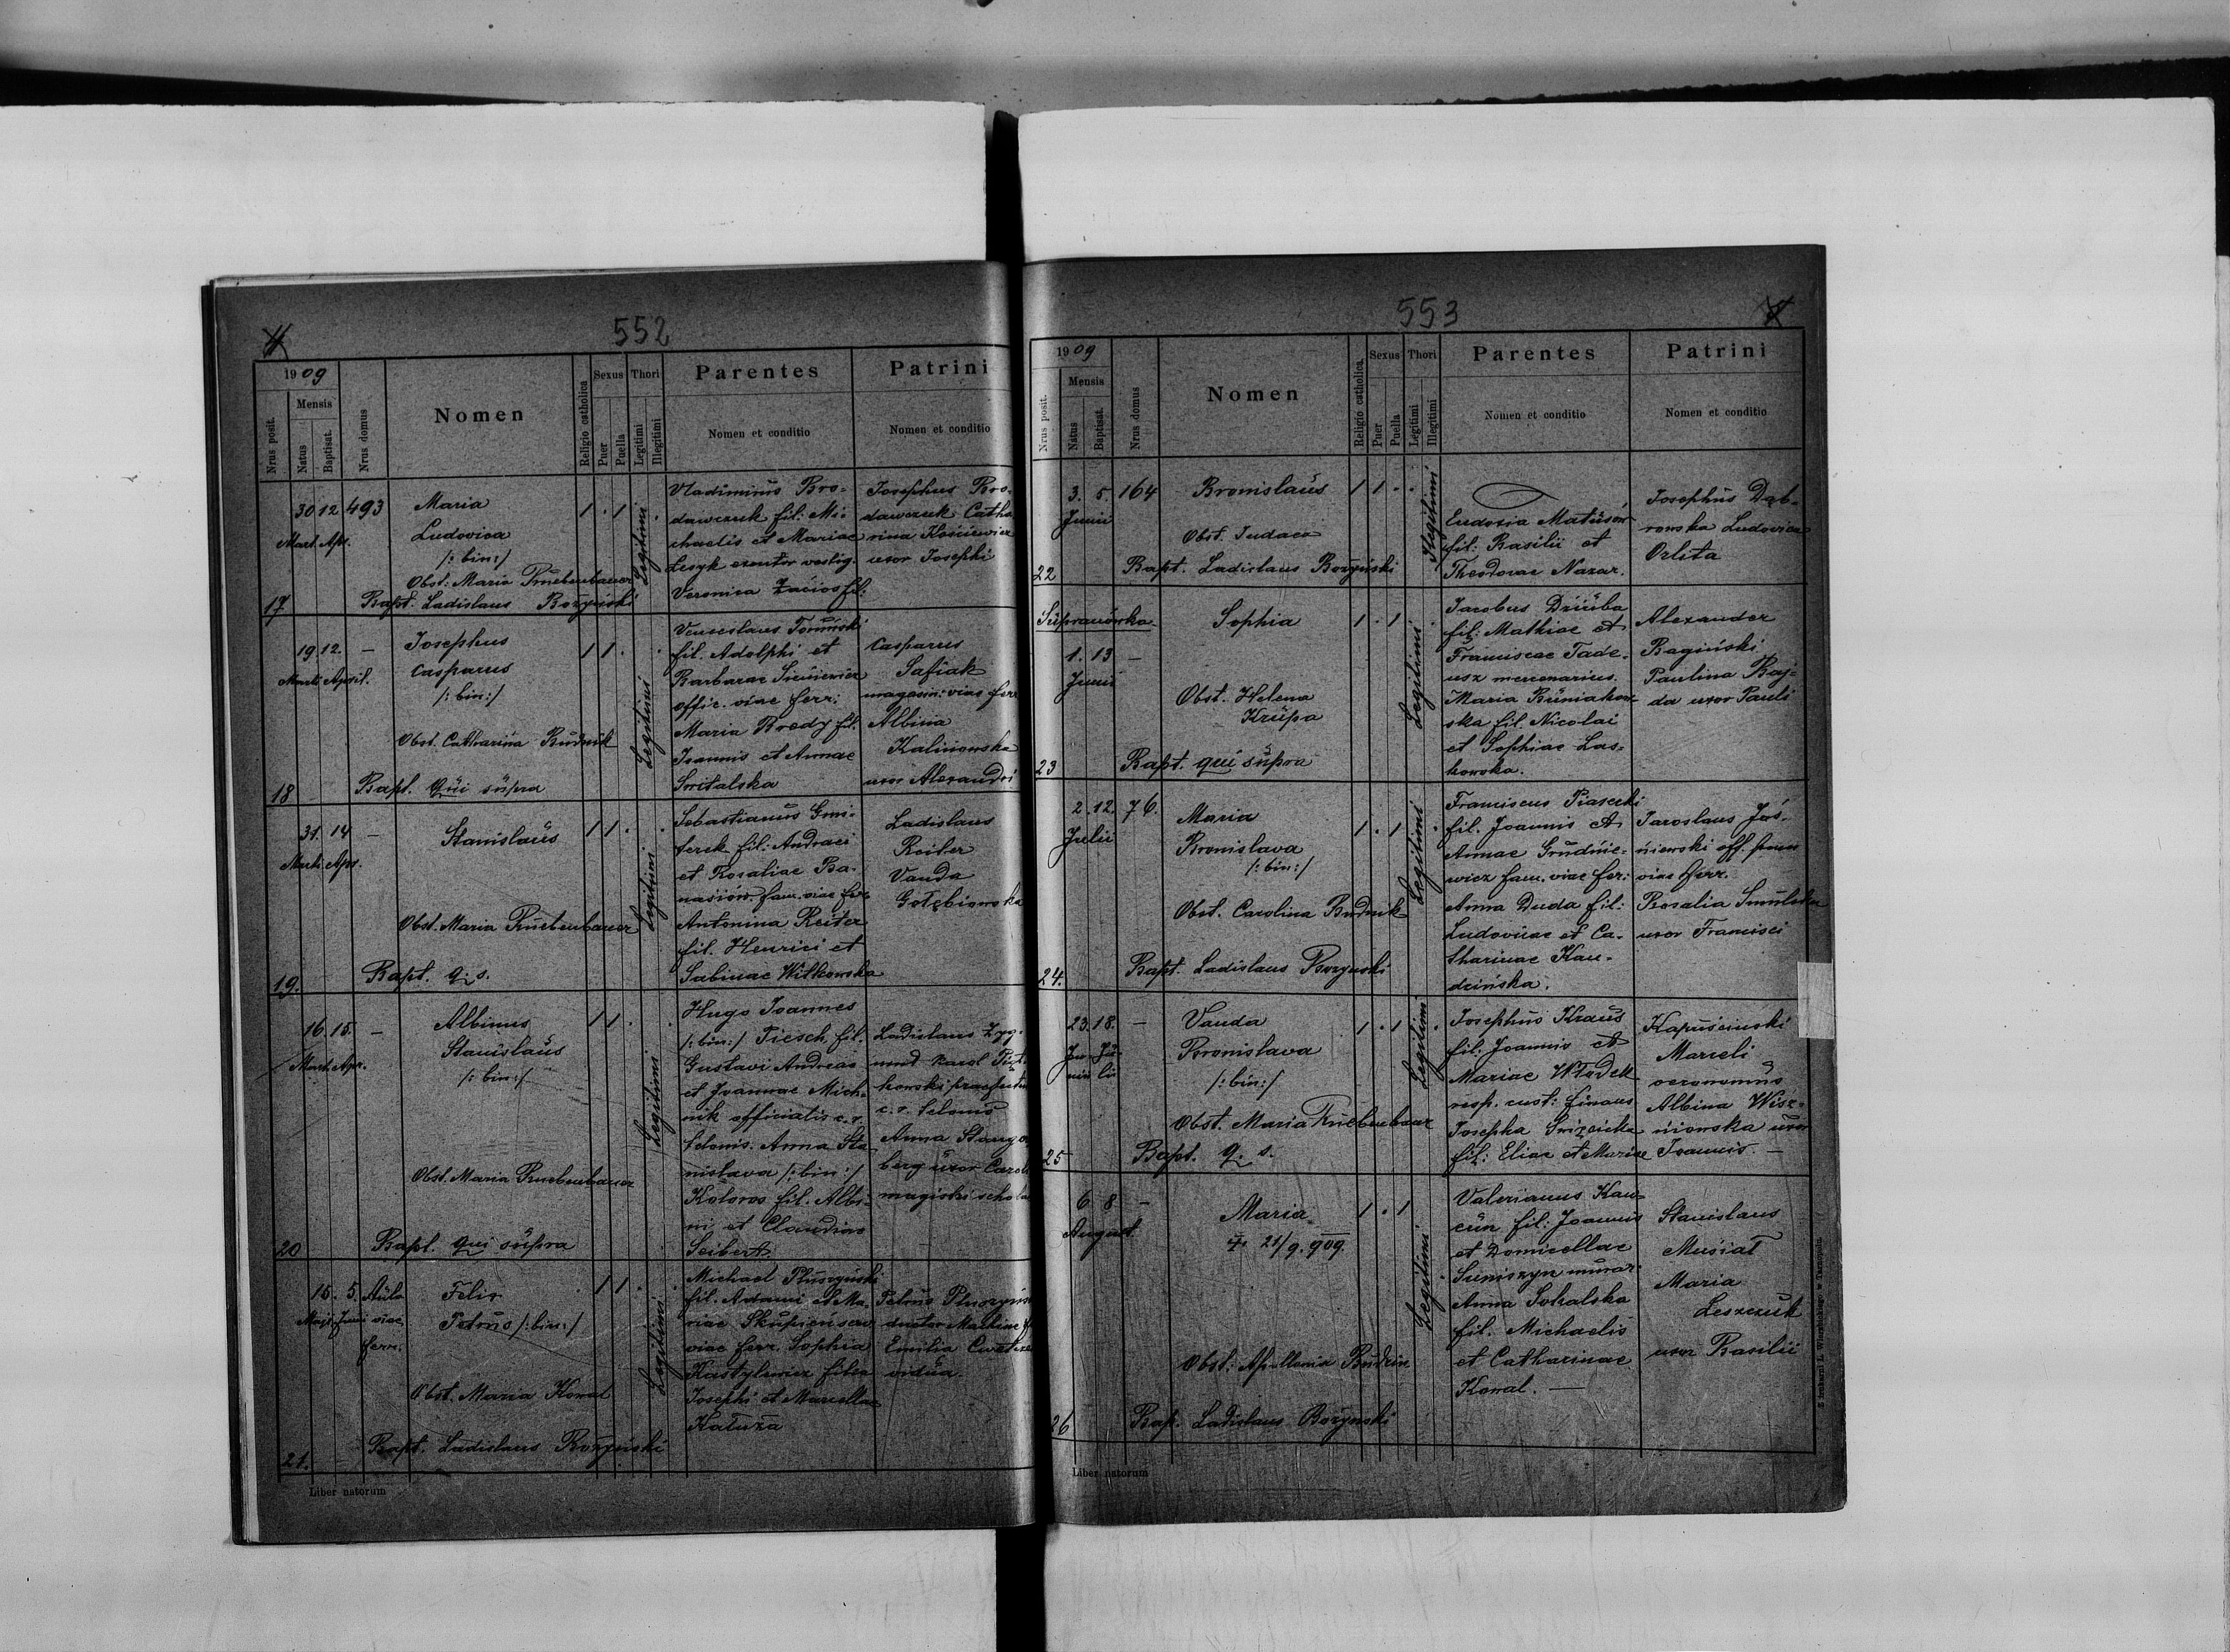 4
552
1909
Nrus posit.
Mensis
Natus
Baptisat.
Nrus domus
Nomen
Religio catholica
Sexus
Puer
Puella
Thori
Legitimi
Illegitimi
Parentes
Nomen et conditio
Patrini
Nomen et conditio
17
30 12 493
Mart. Apr.
Maria
Ludovica
/:bin:/
Obst. Maria Ruebenbauer
Bapt. Ladislaus Bożyński
1 . 1 .
Legitimi
Vladimirus Bro-
dawczuk fil: Mi-
chaelis et Mariae
Lesyk
Veronica fil:
Josephus Bro-
dawczuk Catha
rina
uxor Josephi
18
19. 12. –
Martii April.
Josephus
Casparus
/:bin:/
Obst. Catharina Budnik
Bapt. qui supra
1 1 . .
Legitimi
Venceslaus Toruński
fil. Adolphi et
Barbarae
offic. viae ferr:
Maria Brody fil.
Joannis et Annae
Switalska
Casparus
Safiak
magasin: viae ferr
Albina
Kalinowska
uxor Alexandri
19.
31. 14 –
Martii Apr.
Stanislaus
Obst. Maria Ruebenbauer
Bapt. q. s.
1 1 . .
Legitimi
Sebastianus Gmi-
terek fil: Andreae
et Rosaliae Ba-
nasiów fam. viae fer
Antonina Reiter
fil. Henrici et
Sabinae Witkowska
Ladislaus
Reiter
Vanda
Gołębiowska
20
16. 15. –
Mart. Apr.
Albinus
Stanislaus
/:bin:/
Obst. Maria Ruebenbauer
Bapt. qui supra
1 1 . .
Legitimi
Hugo Joannes
/:bin:/ Tiesch, fil.
Gustavi Andreae
et Joannae Mich-
nik officialis c. r.
Anna Sta
nislava /:bin:/
Kotoros fil. Albi-
ni et Claudiae
Seibert
Ladislaus Zyg-
mund Karol
howski
c. r.
Anna
berg uxor Caroli
magistri schola
21.
15. 5. Aula
Maji Junii viae
ferr.
Felix
Petrus /:bin:/
Obst. Maria Kowal
Bapt. Ladislaus Bożyński
1 1 . .
Legitimi
Michael Pluszyński
fil. Adami et Ma-
riae Skupien serv.
viae ferr. Sophia
filia
Josephi et Marcellae
Kałuża
Petrus Pluszyński
Emilia
vidua.
Liber natorum
553
1909
Nrus posit.
Mensis
Natus
Baptisat.
Nrus domus
Nomen
Religio catholica.
Sexus
Puer
Puella
Thori
Legitimi
Illegitimi
Parentes
Nomen et conditio
Patrini
Nomen et conditio
22
3. 5. 164
Junii
Bronislaus
Obst. Judaea
Bapt. Ladislaus Bożyński
1 1 . .
Illegitimi
Eudoxia Matusów
fil: Basilii et
Theodorae Nazar.
Josephus Dąb-
rowska Ludovica
Orlita
23
Supranówka
1. 13 –
Junii
Sophia
Obst. Helena
Krupa
Bapt. qui supra
1 . 1 .
Legitimi
Jacobus Dziuba
fil: Mathiae et
Franciscae Tade-
usz mercenarius.
Maria
ska fil. Nicolai
et Sophiae Las-
kowska.
Alexander
Bagiński
Paulina Baj-
da uxor Pauli
24.
2. 12. 76.
Julii
Maria
Bronislava
/:bin:/
Obst. Carolina Budnik
Bapt. Ladislaus Bożyński
1 . 1 .
Legitimi
Franciscus Piasecki
fil. Joannis et
Annae Grudnie-
wicz fam. viae fer:
Anna Duda fil:
Ludovicae et Ca-
tharinae Kan-
dzińska.
Jaroslaus Jaś-
niewski off.
viae ferr.
Rosalia
uxor Francisci
25
23. 18. –
Ju- Ju-
nii lii
Vanda
Bronislava
/:bin:/
Obst. Maria Ruebenbauer
Bapt. q. s.
1 . 1 .
Legitimi
Josephus Kraus
fil: Joannis et
Mariae Włodek
resp. cust: finans
Josepha
fil: Eliae et Mariae
Kapuscinski
Marceli
oeconomus
Albina Wisz-
niowska uxor
Joannis. –
26
6 8 –
August.
Maria
21/9. 909.
Obst. Apollonia Budzin
Bap. Ladislaus Bożyński
1 . 1 .
Legitimi
Valerianus Kan-
fil: Joannis
et Domicellae
murar.
Anna Sokalska
fil. Michaelis
et Catharinae
Kowal. –
Stanislaus
Musiał
Maria
Leszczuk
uxor Basilii
Liber natorum